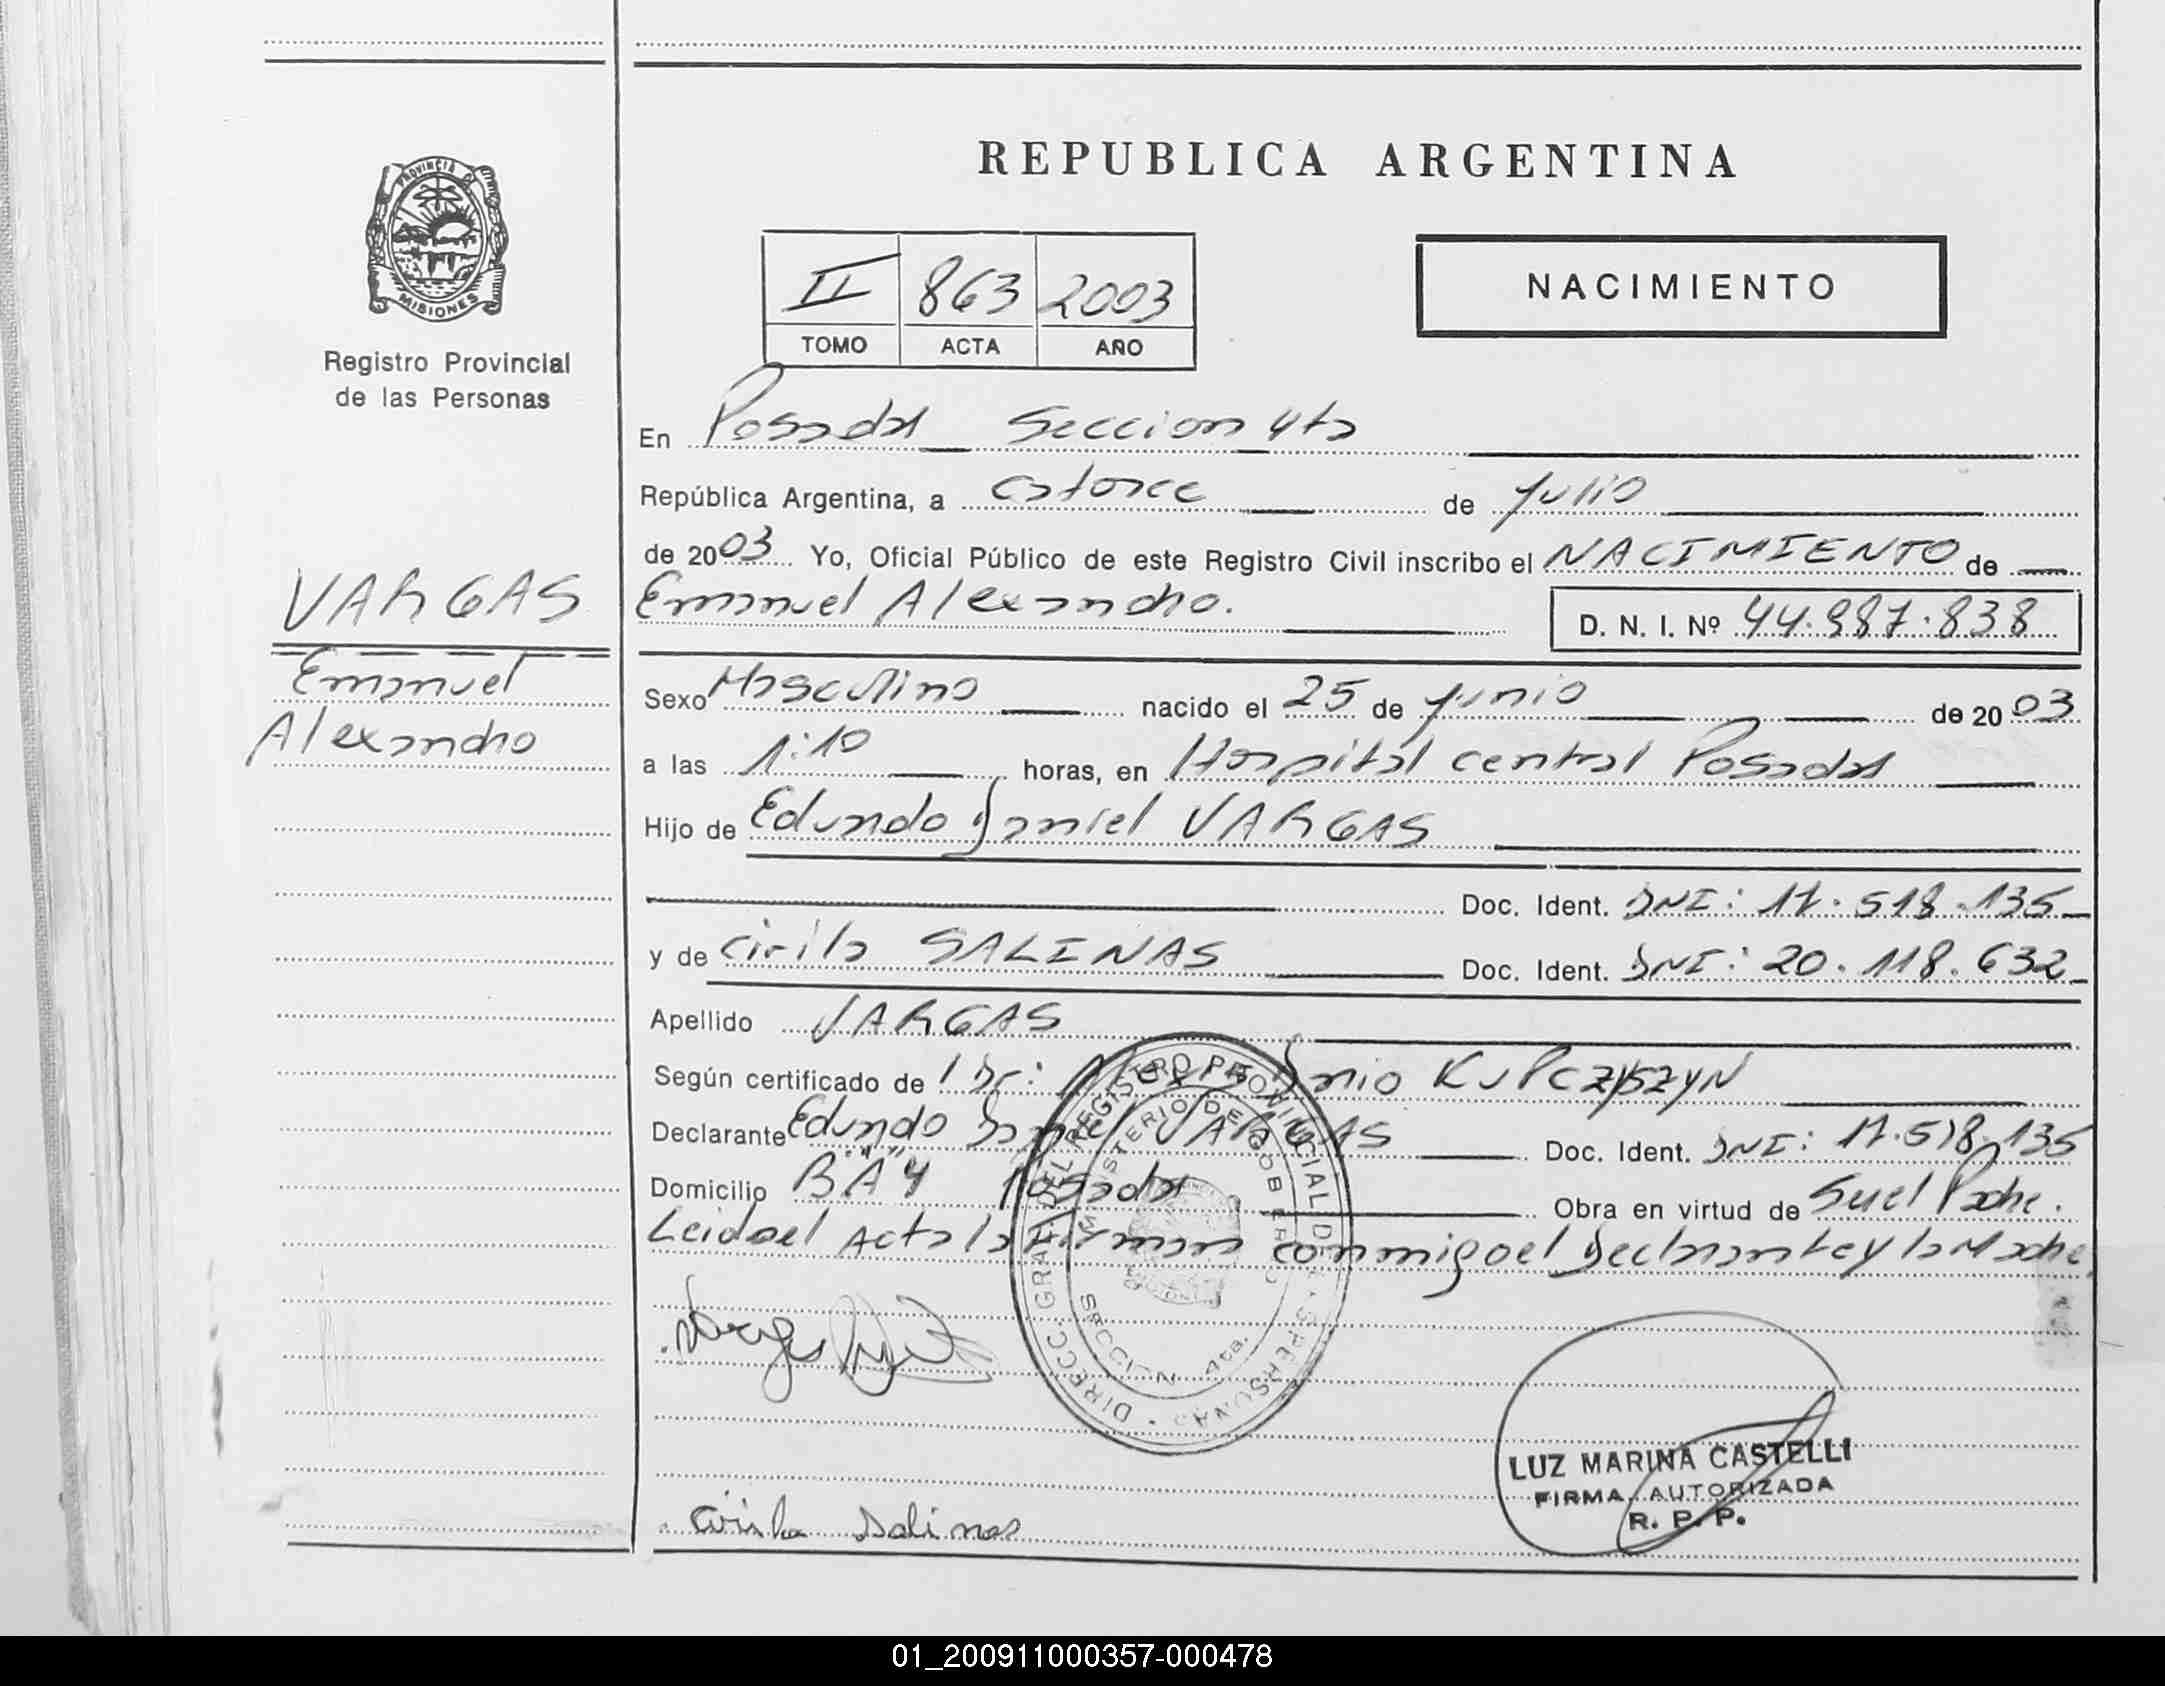 REPUBLICA ARGENTINA
PROVINCIA DE
MISIONES
Registro Provincial
de las Personas
II 863 2003
TOMO ACTA AÑO
NACIMIENTO
En Posadas Seccion 4ta
República Argentina, a catorce de Julio
de 2003 Yo, Oficial Público de este Registro Civil inscribo el NACIMIENTO de
VARGAS
Emanuel
Alexandro
Emanuel Alexandro. D. N. I. Nº 44.987.838
Sexo Masculino nacido el 25 de Junio de 2003
a las 1:10 horas, en Hospital central Posadas
Hijo de Edundo Daniel VARGAS
Doc. Ident. DNI: 17.518.135
y de Cirila SALINAS Doc. Ident. DNI: 20.118.632
Apellido VARGAS
Según certificado de Dr: KUPCZYSZYN
Declarante Edundo Daniel VARGAS Doc. Ident. DNI: 17.518.135
Domicilio Posadas Obra en virtud de Padre.
Leida el Acta la firman conmigo el Declarante y la Madre
DIRECC. GRAL. DEL REGISTRO PROVINCIAL DE LAS PERSONAS
MINISTERIO DE GOBIERNO
SECCION 4ta.
Vargas
Cirila Salinas
LUZ MARINA CASTELLI
FIRMA AUTORIZADA
R. P. P.
01_200911000357-000478